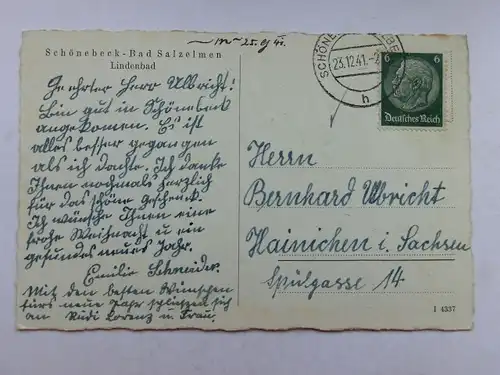 Schönebeck-Bad Salzelmen
Lindenbad
Geehrter Herr Ulbricht!
Bin gut in Schönebeck
angekommen. Es ist
alles besser gegangen
als ich dachte. Ich danke
Ihnen nochmals herzlich
für das schöne Geschenk.
Ich wünsche Ihnen eine
frohe Weihnacht u ein
gesundes neues Jahr.
Emilie Schneider.
Mit den besten Wünschen
fürs neue Jahr schliessen sich
an Rudi Lorenz u. Frau.
SCHÖNEBECK
23.12.41.-2
h
6 6
Deutsches Reich
Herrn
Bernhard Ulbricht
Hainichen i. Sachsen
Spülgasse 14
I 4337